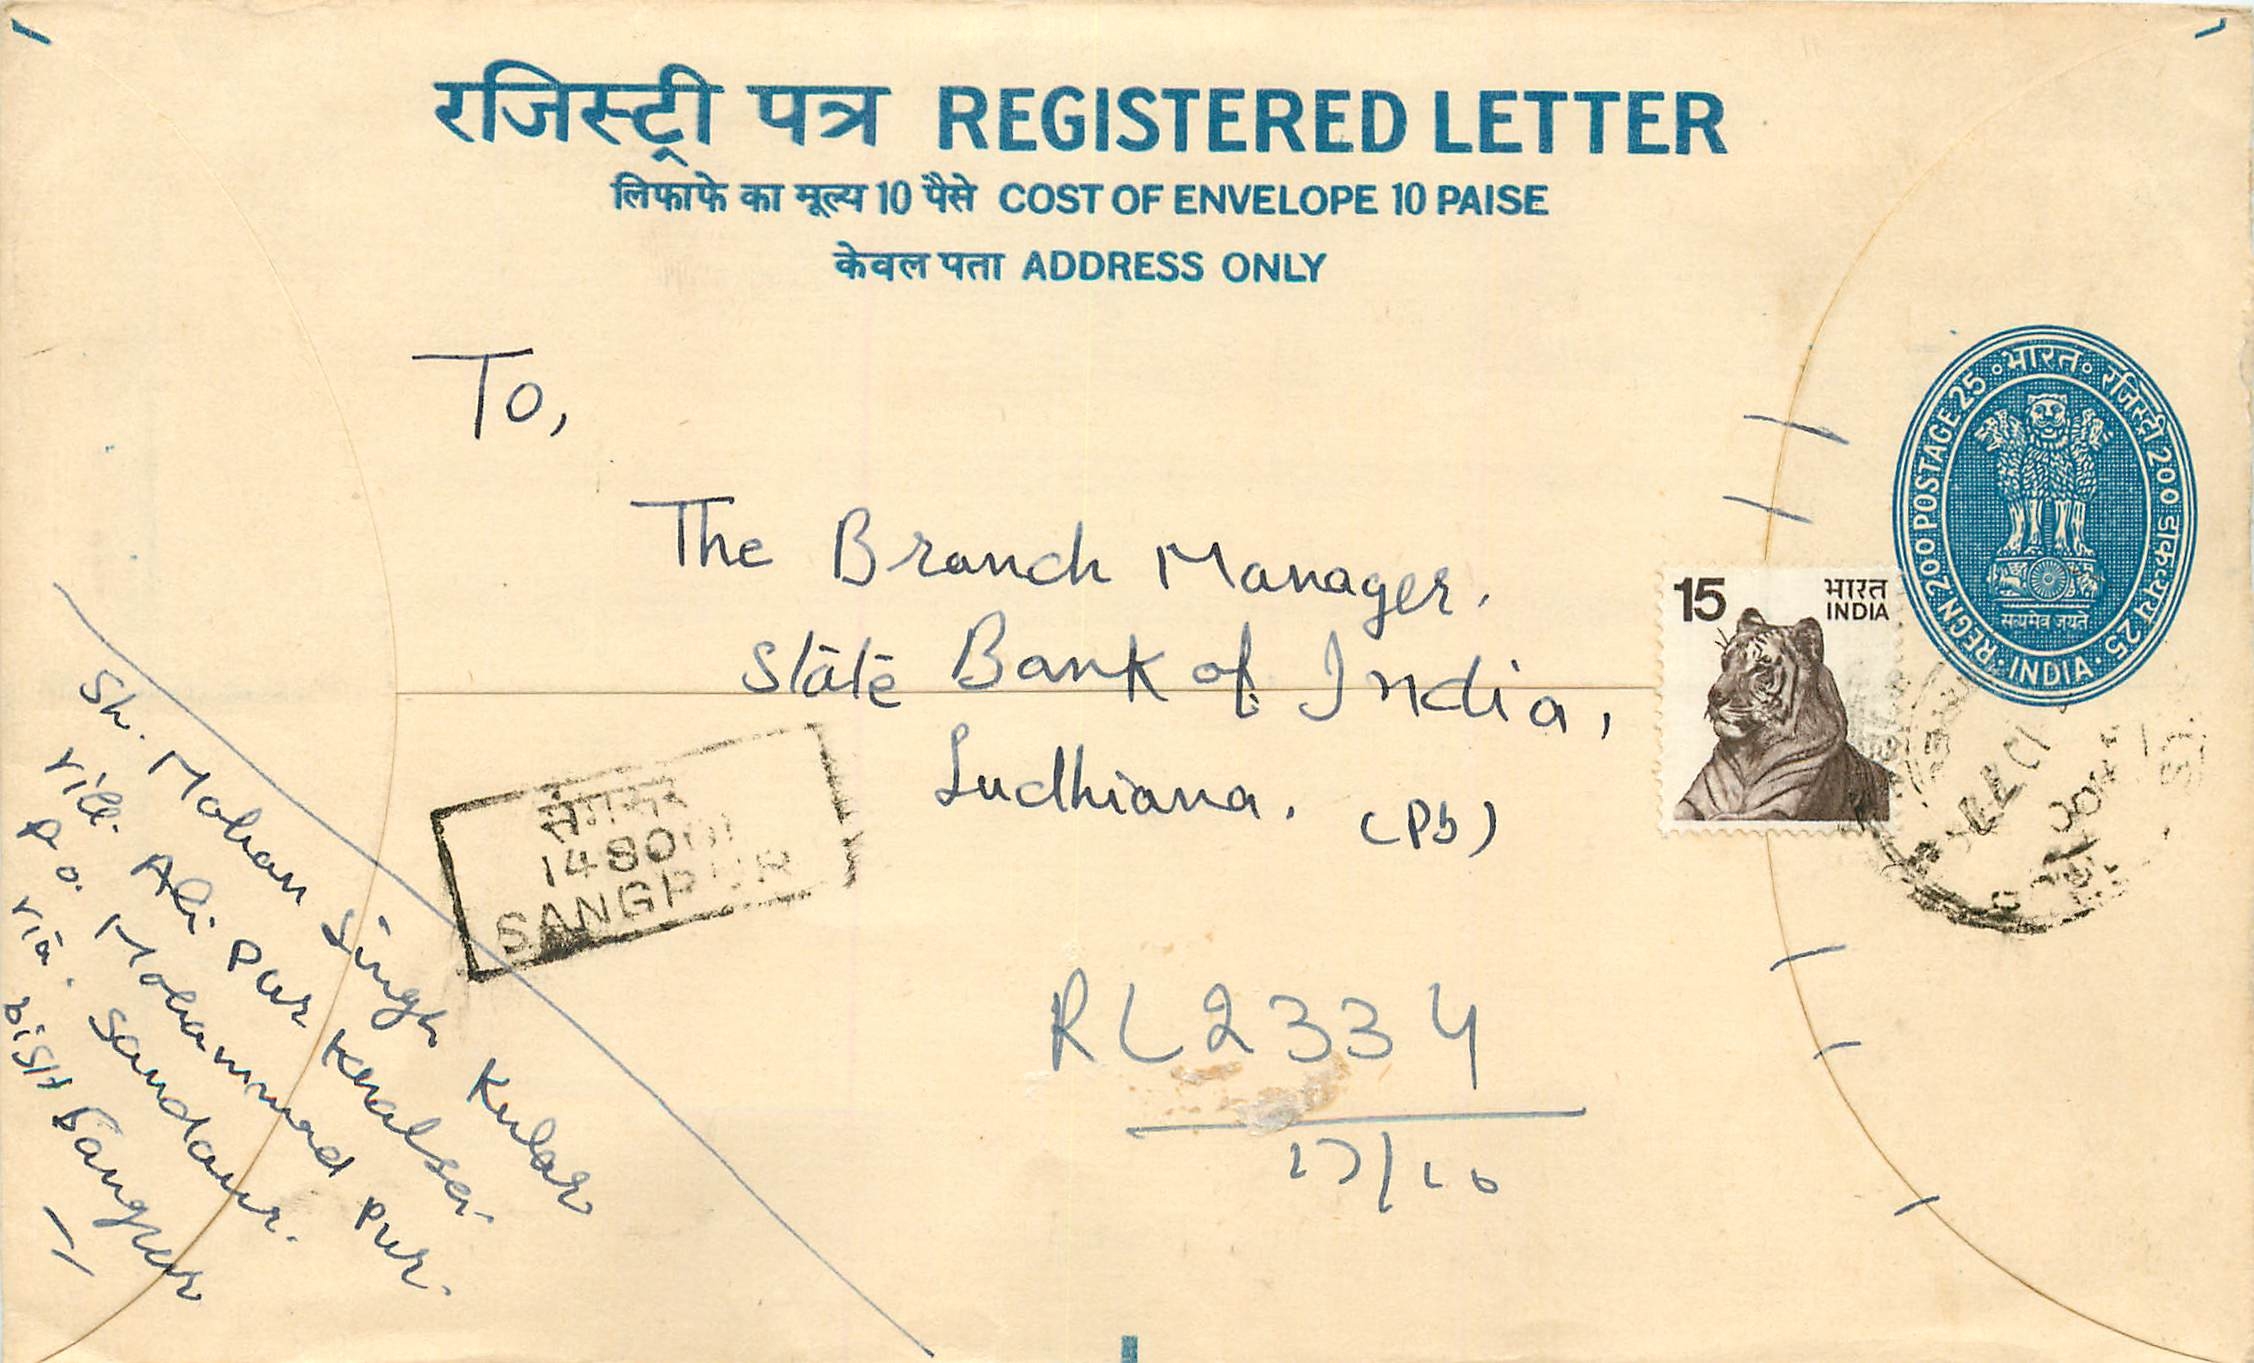 रजिस्ट्री पत्र REGISTERED LETTER
लिफाफे का मूल्य 10 पैसे COST OF ENVELOPE 10 PAISE
केवल पता ADDRESS ONLY
To,
The Branch Manager.
State Bank of India,
Ludhiana. (Pb)
भारत रजिस्ट्री 200 डाक व्यय 25
REGN 200 POSTAGE 25
सत्यमेव जयते
INDIA
15 भारत
INDIA
संगरूर
148001
SANGRUR
RL 2334
17/10
Sh. Mohan Singh Kular
Vill. Ali Pur Khalsa.
P.O. Mohammad Pur.
Via. Sandaur.
Distt Sangrur